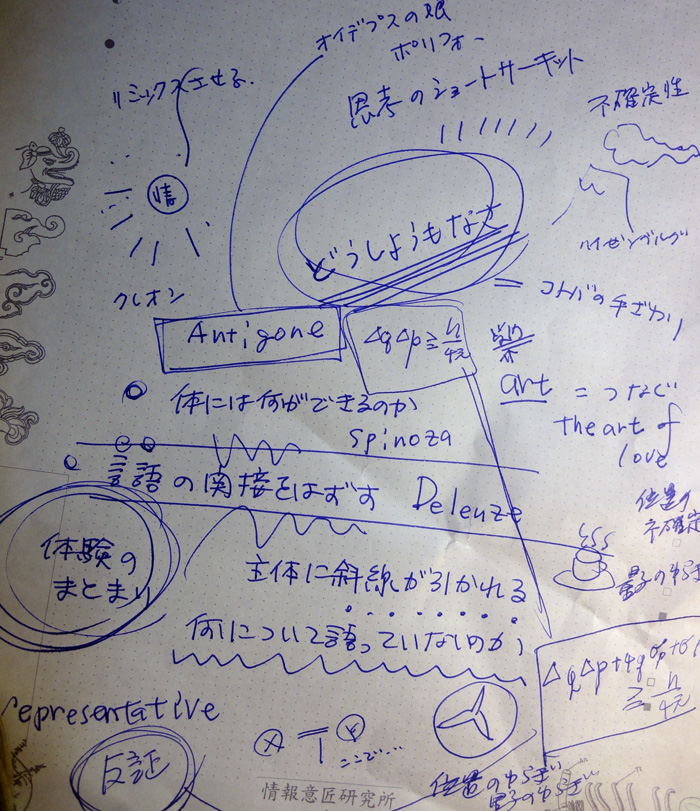 オイデプスの眼
ポリフォー
リミックスさせる.
思考のショートサーキット
不確定性
情
どうしようもなさ
ハイゼンブルグ
クレオン
= コトバの手ざわり
Antigone
ΔqΔp≧h/4π
art = つなぐ
the art of
love
体には何ができるのか
Spinoza
言語の関接をはずす Deleuze
位置の
不確定
体験の
まとまり
主体に斜線が引かれる
量子のゆらぎ
何について語っていないのか
representative
反証
ここで...
≧h/4π
位置のゆらぎ
量子のゆらぎ
情報意匠研究所